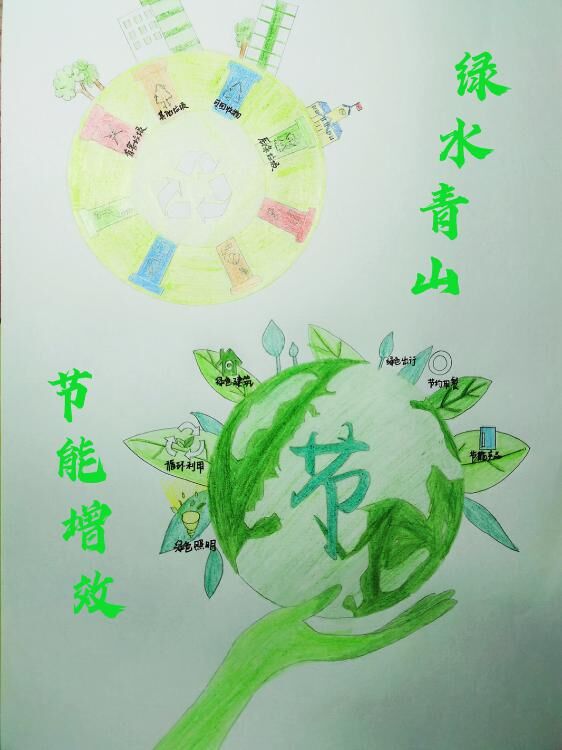 绿水青山
其他垃圾
可回收物
有害垃圾
厨余垃圾
节能增效
绿色建筑
绿色出行
节约用餐
循环利用
节能产品
绿色照明
节